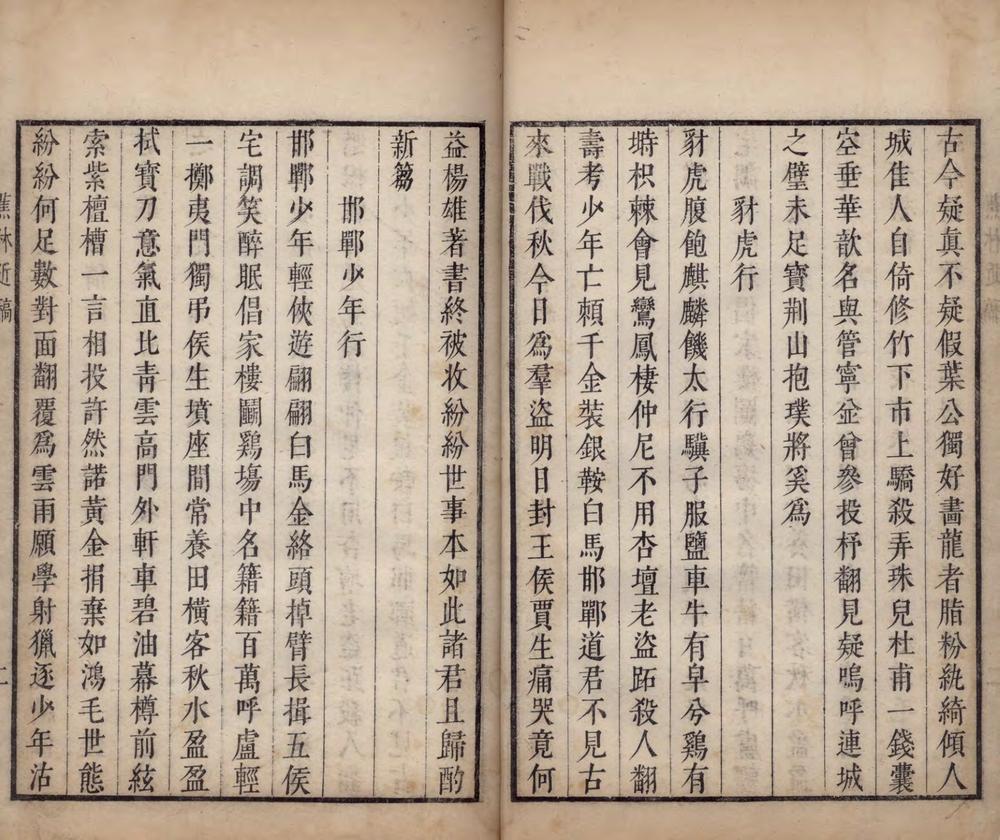 古今疑真不疑假葉公獨好畫龍者脂粉紈綺傾人
城隹人自倚修竹下市上驕殺弄珠兒杜甫一錢囊
空垂華歆名與管寧並曾參投杼翻見疑嗚呼連城
之璧未足寶荆山抱璞將奚爲
豺虎行
豺虎腹飽麒麟饑太行驥子服鹽車牛有皁兮鷄有
塒枳棘會見鸞鳳棲仲尼不用杏壇老盜跖殺人翻
壽考少年亡頼千金裝銀鞍白馬邯鄲道君不見古
來戰伐秋今日爲羣盜明日封王侯賈生痛哭竟何
益楊雄著書終被收紛紛世事本如此諸君且歸酌
新篘
邯鄲少年行
邯鄲少年輕俠遊翩翩白馬金絡頭掉臂長揖五侯
宅調笑醉眠倡家樓鬭鷄塲中名籍籍百萬呼盧輕
一擲夷門獨弔侯生墳座間常養田橫客秋水盈盈
拭寶刀意氣直比青雲高門外軒車碧油幕樽前絃
索紫檀槽一言相投許然諾黃金捐棄如鴻毛世態
紛紛何足數對面翻覆爲雲雨願學射獵逐少年沽